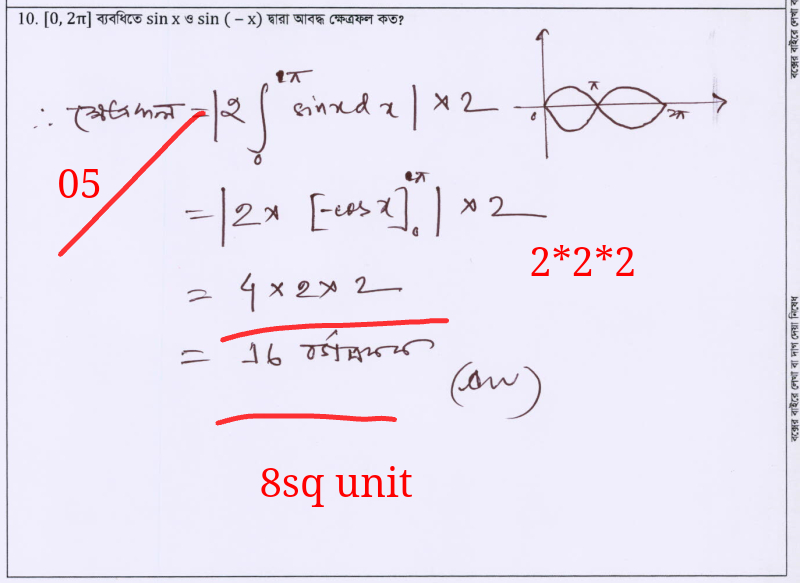 10. [0, 2π] ব্যবধিতে sin x ও sin (– x) দ্বারা আবদ্ধ ক্ষেত্রফল কত?
∴ ক্ষেত্রফল = |2 ∫₀^π sin x dx| × 2
π
0
2π
05
= |2 × [-cos x]₀^π| × 2
2*2*2
= 4 × 2 × 2
= 16 বর্গ একক
(Ans)
8sq unit
বক্সের বাইরে লেখা বা দাগ দেয়া নিষেধ